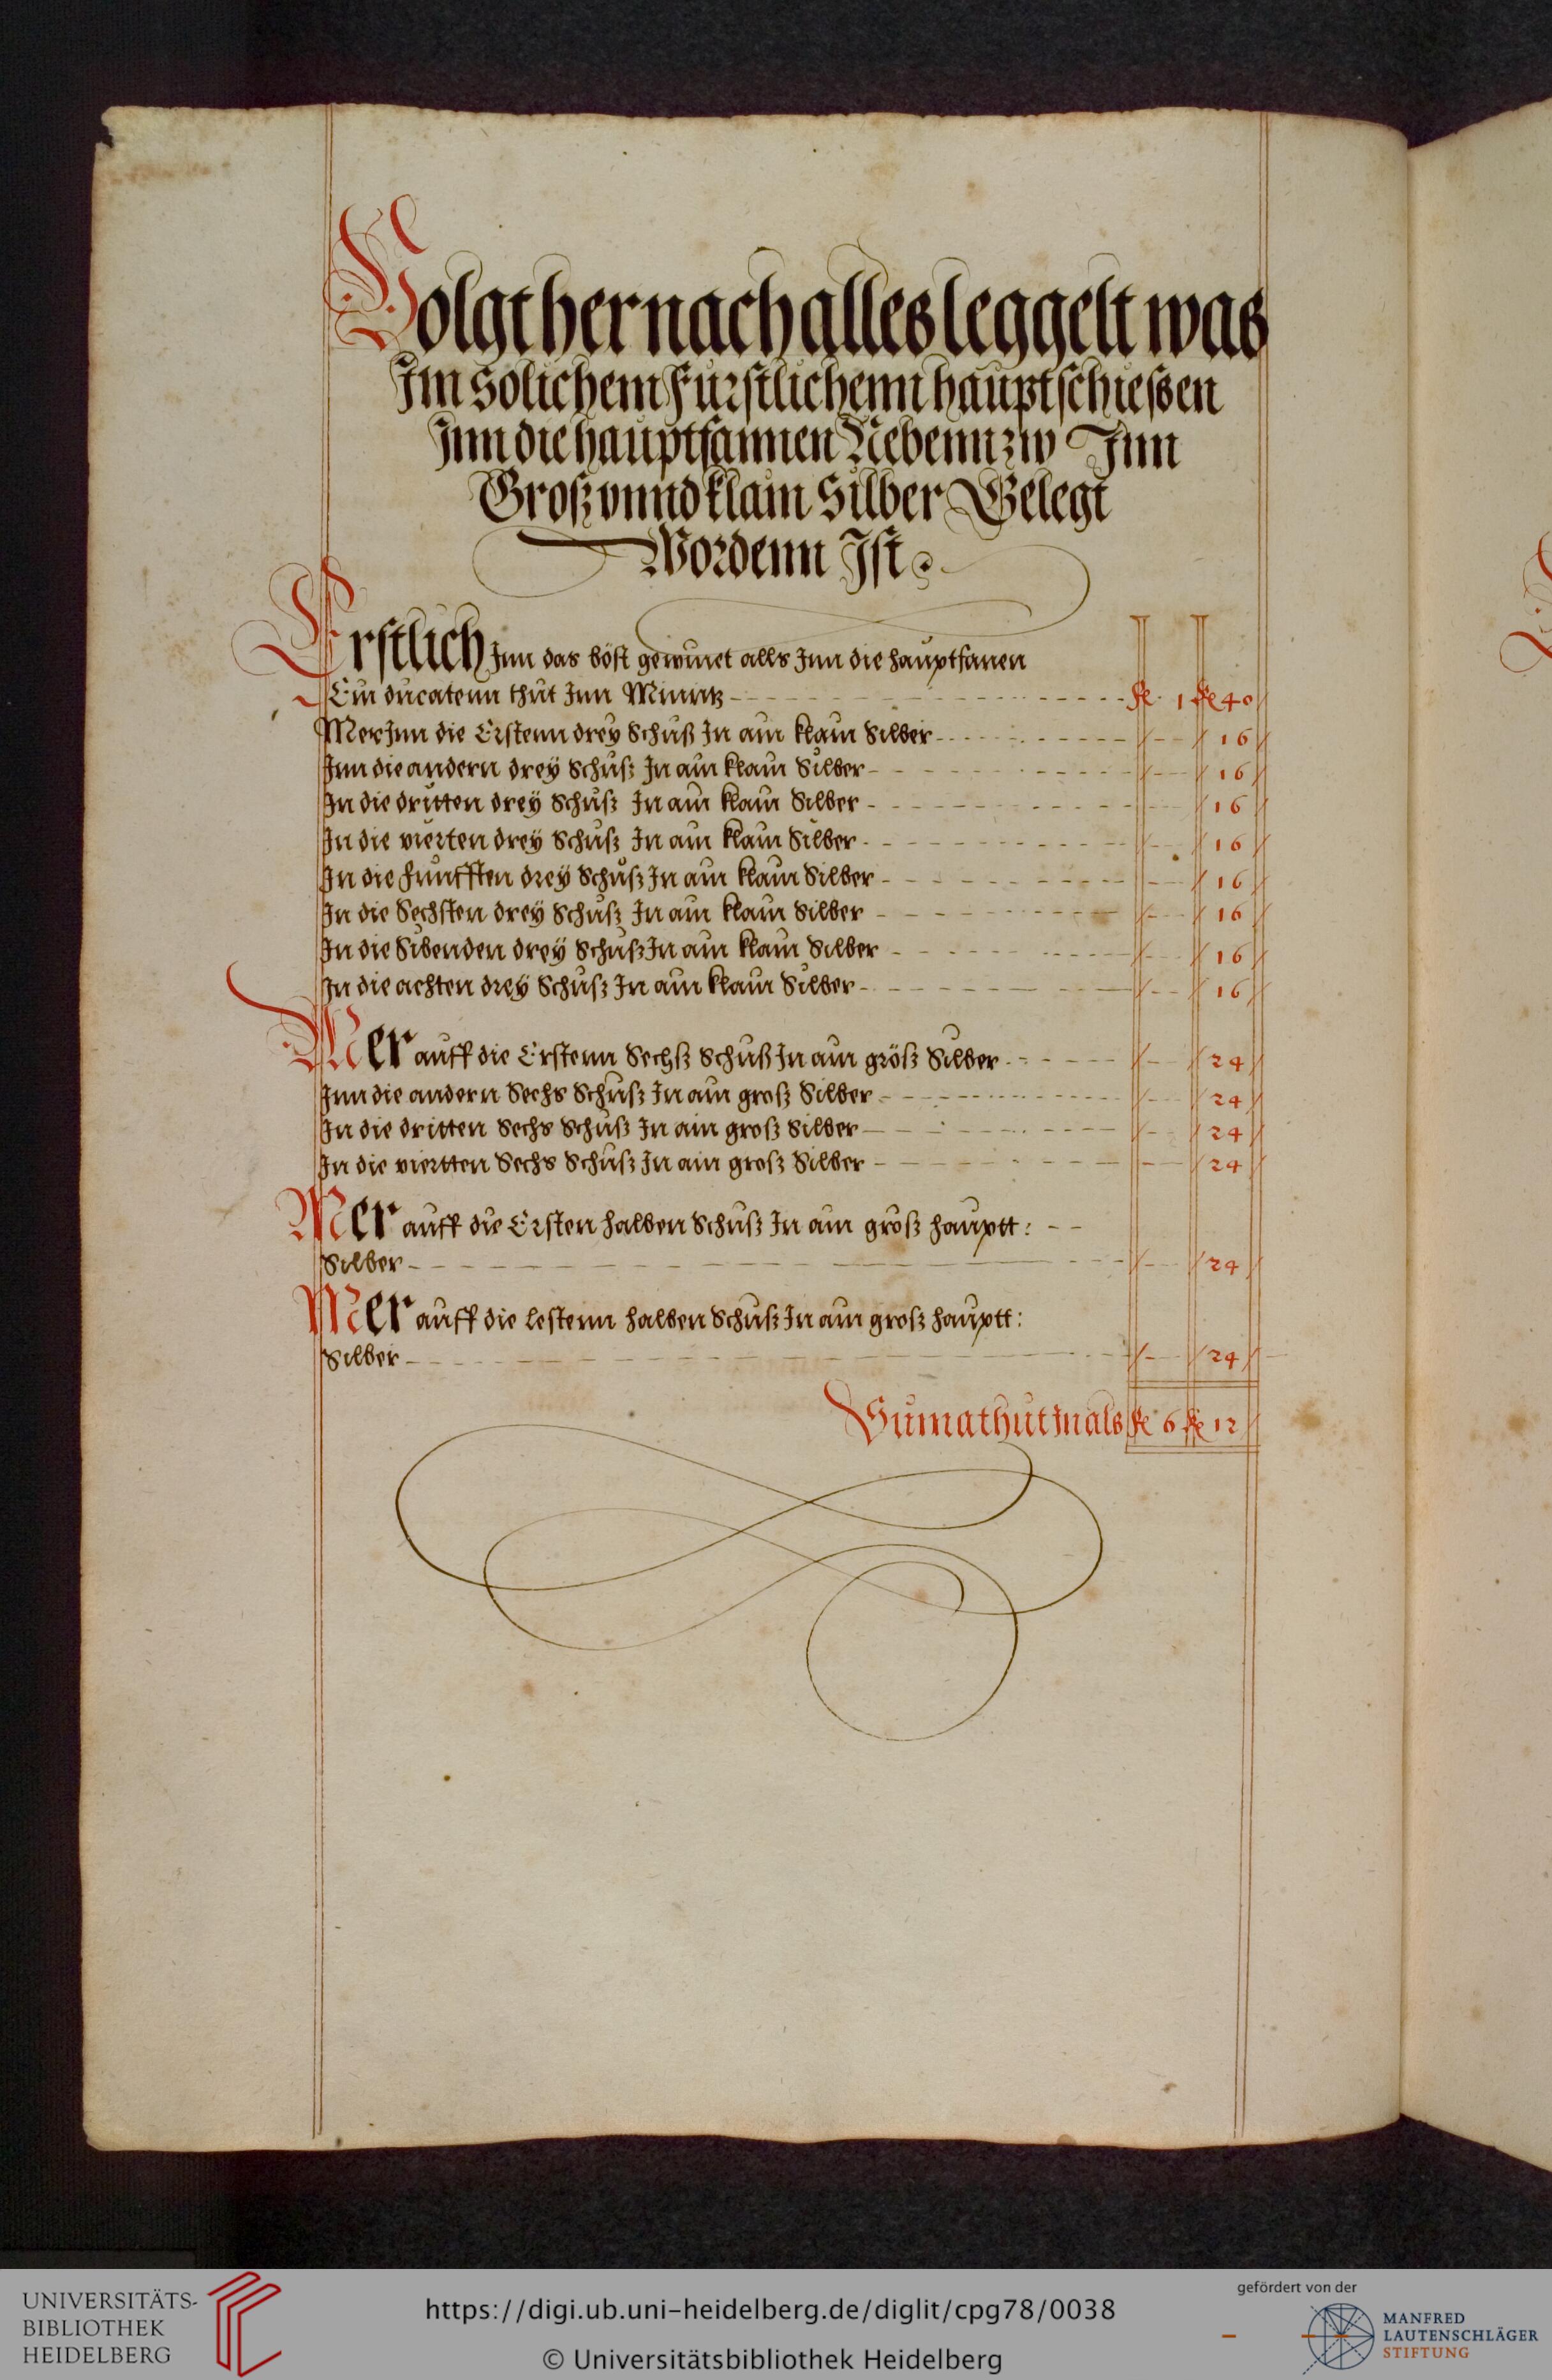 Volgt hernach alles leggelt was
Im solichem Fürstlichenn hauptschiessen
Inn die hauptfannen Nebenn zw Inn
Grosz vnnd klain Silber Gelegt
Wordenn Ist
Erstlich Inn das böst gewinet alls Inn die hauptfanen
Ein ducatenn thut Inn Minntz fl 1 kr 40
Mer Inn die Erstenn drey Schuß In ain klain Silber 16
Inn die andern drey Schusz In ain klain Silber 16
In die dritten drey Schusz In ain klain Silber 16
In die vierten drey Schusz In ain klain Silber 16
In die funfften drey Schusz In ain klain Silber 16
In die Sechsten drey Schusz In ain klain Silber 16
In die Sibenden drey Schusz In ain klain Silber 16
In die achten drey Schusz In ain klain Silber 16
Mer auff die Erstenn Sechsz Schuß In ain grosz Silber 24
Inn die andern Sechs Schusz In ain grosz Silber 24
In die dritten Sechs Schusz In ain grosz Silber 24
In die viertten Sechs Schusz In ain grosz Silber 24
Mer auff die Ersten halben Schusz In ain grosz hauptt:
Silber 24
Mer auff die lestenn halben Schusz In ain grosz hauptt:
Silber 24
Suma thut Inals fl 6 kr 12
UNIVERSITÄTS-
BIBLIOTHEK
HEIDELBERG
https://digi.ub.uni-heidelberg.de/diglit/cpg78/0038
© Universitätsbibliothek Heidelberg
gefördert von der
MANFRED
LAUTENSCHLÄGER
STIFTUNG